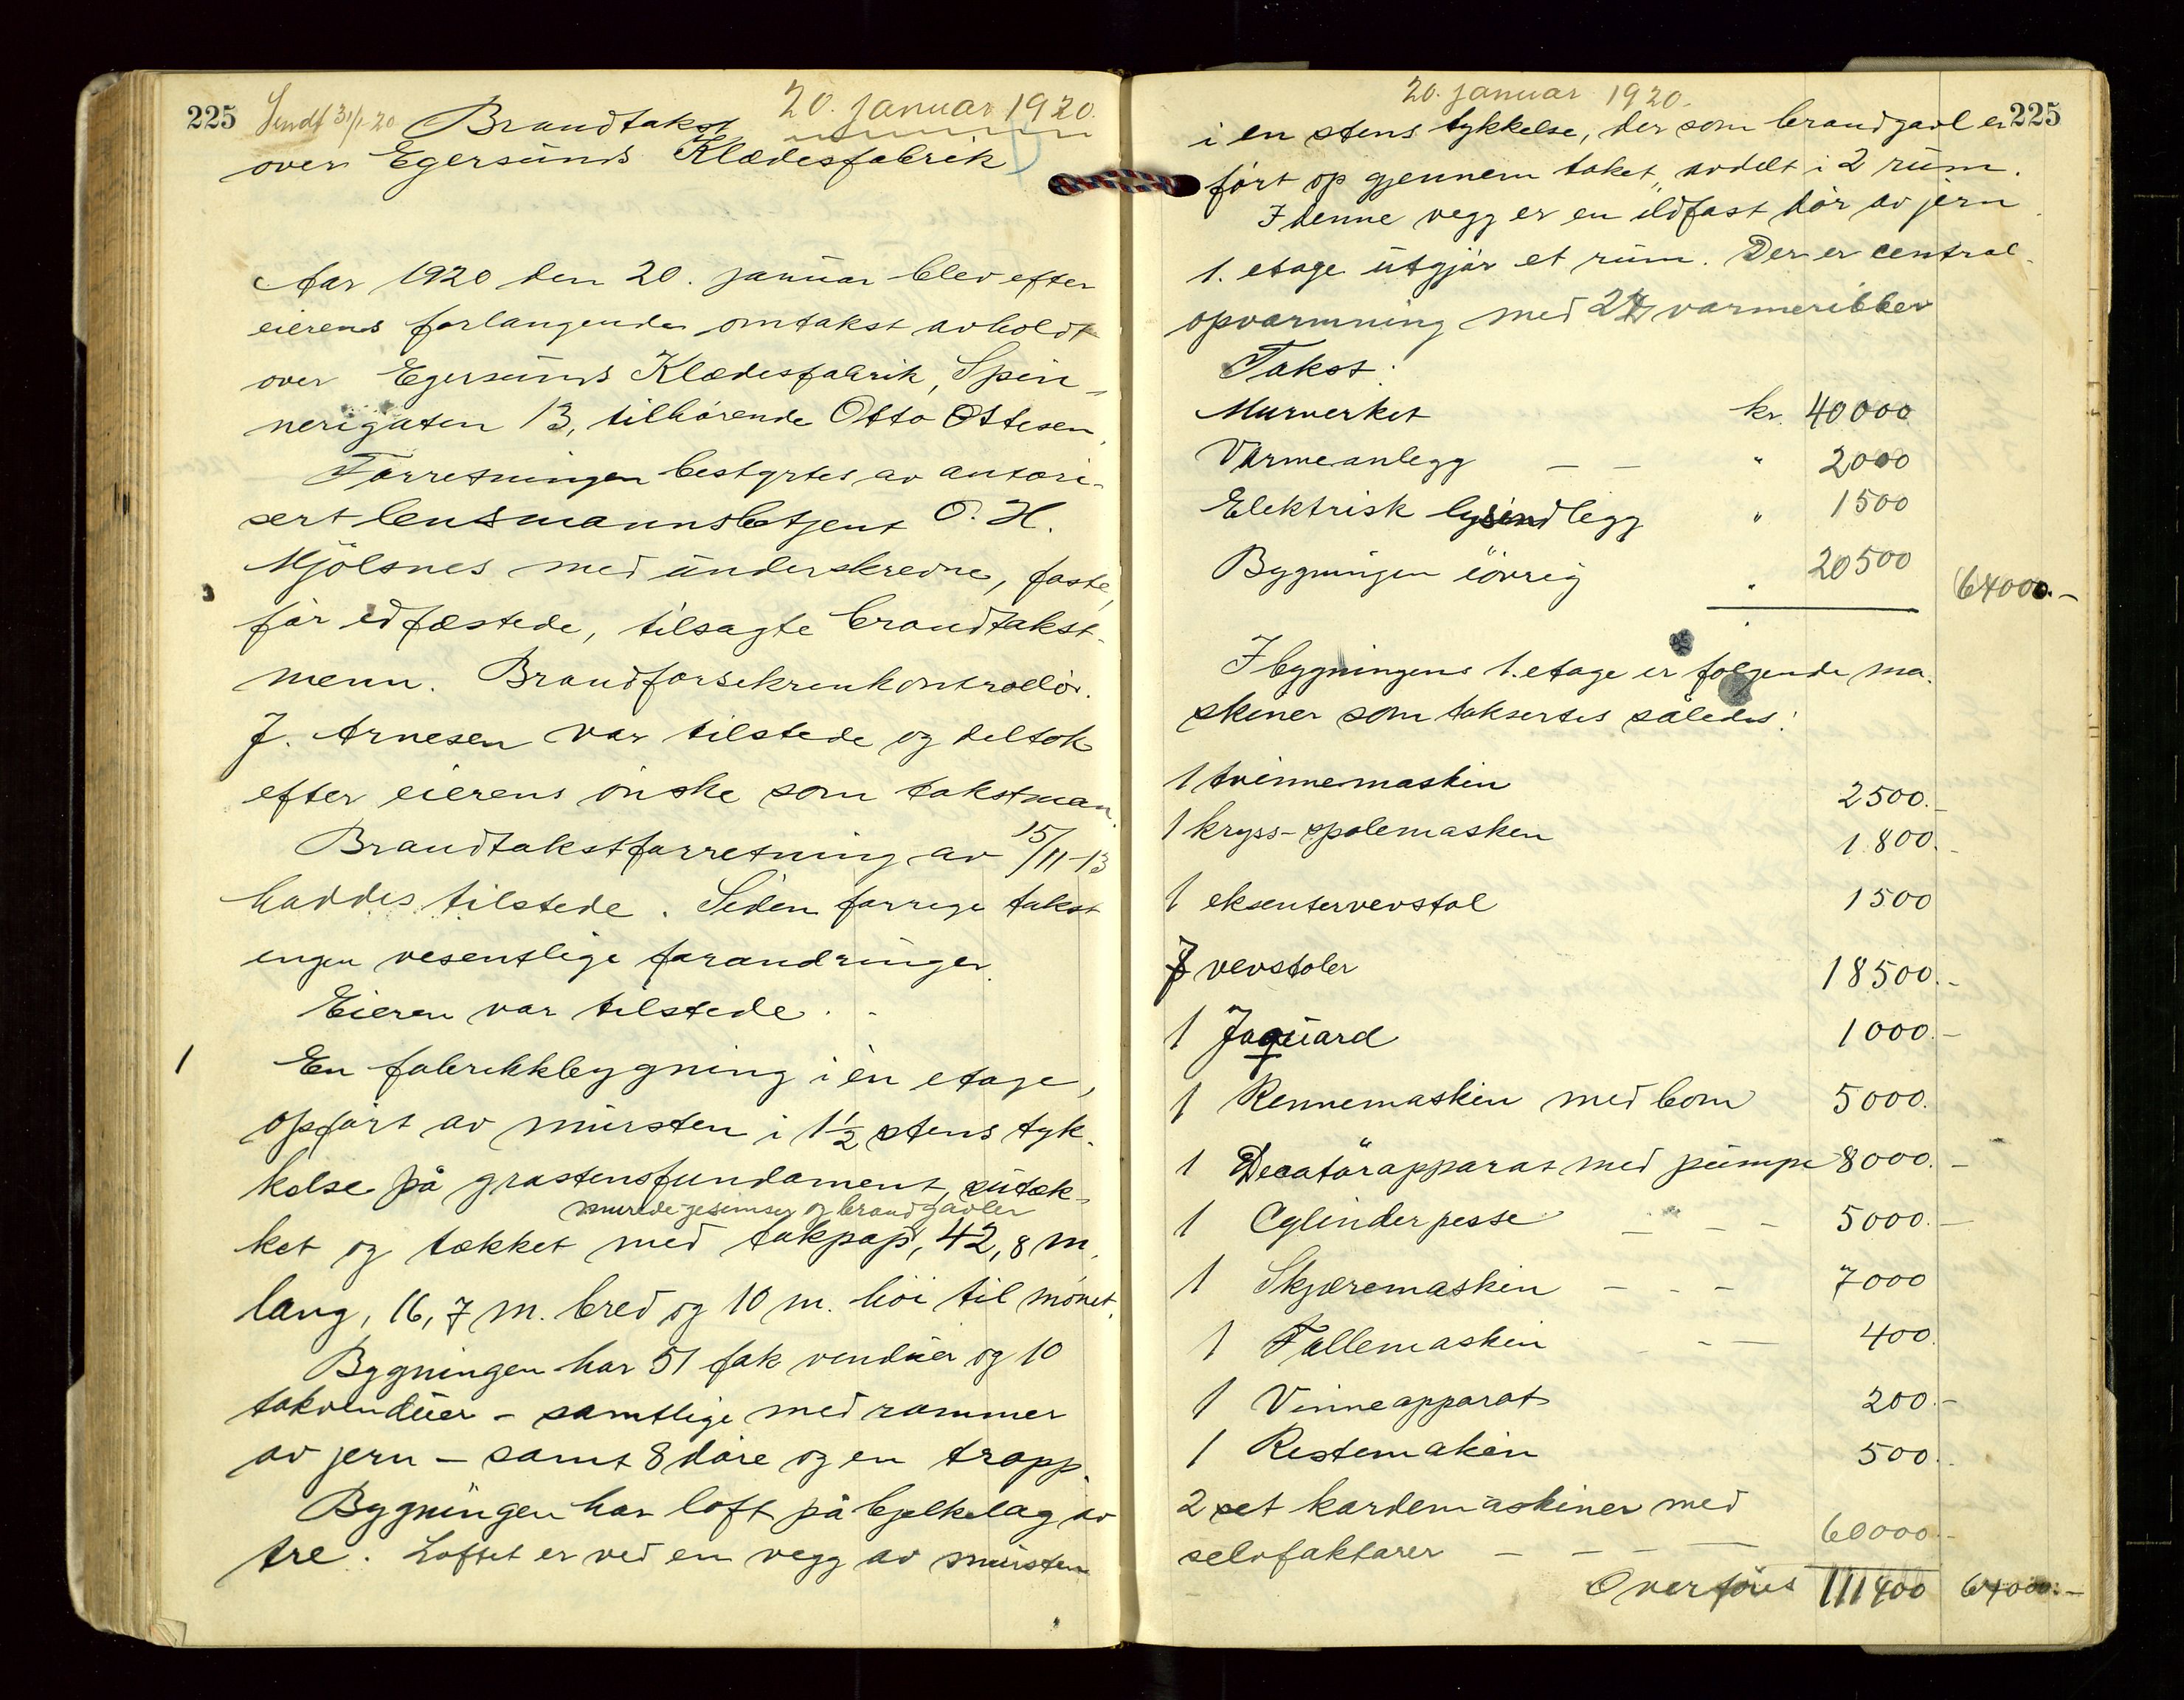 225 Sendt 31/1-20 Brandtakst 20. januar 1920.
over Egersunds Klædesfabrik
Aar 1920 den 20. januar blev efter
eierens forlangende omtakst avholdt
over Egersunds Klædesfabrik, Spin-
nerigaten 13, tilhörende Otto Ottesen,
Forretningen bestyrtes av autori-
sert lensmannsbetjent O. H.
Mjölsnes med underskrevne, faste,
för edfæstede, tilsagte brandtakst-
menn. Brandforsikrenkontrollör.
J. Arnesen var tilstede og deltok
efter eierens önske som takstman.
Brandtakstforretning av 15/11-13
haddes tilstede. Siden forrige takst
ingen vesentlige forandringer.
Eieren var tilstede.
1 En fabrikkbygning i én etage,
opfört av mursten i 1½ stens tyk-
kelse på grastensfundament, sutæk-
murede gesimser og brandgavler
ket og tækket med takpap, 42,8 m.
lang, 16,7 m. bred og 10 m. höi til mönet.
Bygningen har 51 fak vinduer og 10
takvinduer - samtlige med rammer
av jern - samt 8 döre og en trapp.
Bygningen har loft på bjelkelag av
tre. Loftet er ved en vegg av mursten
20. januar 1920.
i en stens tykkelse, der som brandgavl er 225
fört op gjennem taket, avdelt i 2 rum.
I denne vegg er en ildfast dör av jern
1. etage utgjör et rum. Der er central-
opvarmning med varmeribber
Takst:
Murverket kr. 40000
Varmeanlegg — — " 2000
Elektrisk lysindlegg " 1500
Bygningen iövrig " 20500 64000.-
I bygningens 1. etage er følgende ma-
skiner som takseres således:
1 tvinnemaskin 2500.-
1 kryss-spolemasken 1800.-
1 eksentervevstol 1500
7 vevstoler 18500.-
1 Jaquard 1000.-
1 Rennemaskin med bom 5000.
1 Decatörapparat med pumpe 8000.-
1 Cylinderpesse — - - 5000.-
1 Skjæremaskin - - - 7000
1 Fallemaskin - - — 400.
1 Vinneapparat 200.-
1 Restemakin 500.-
2 set kardemaskiner med
selvfaktorer — — — — 60000.-
Overföres 111400 64000.-